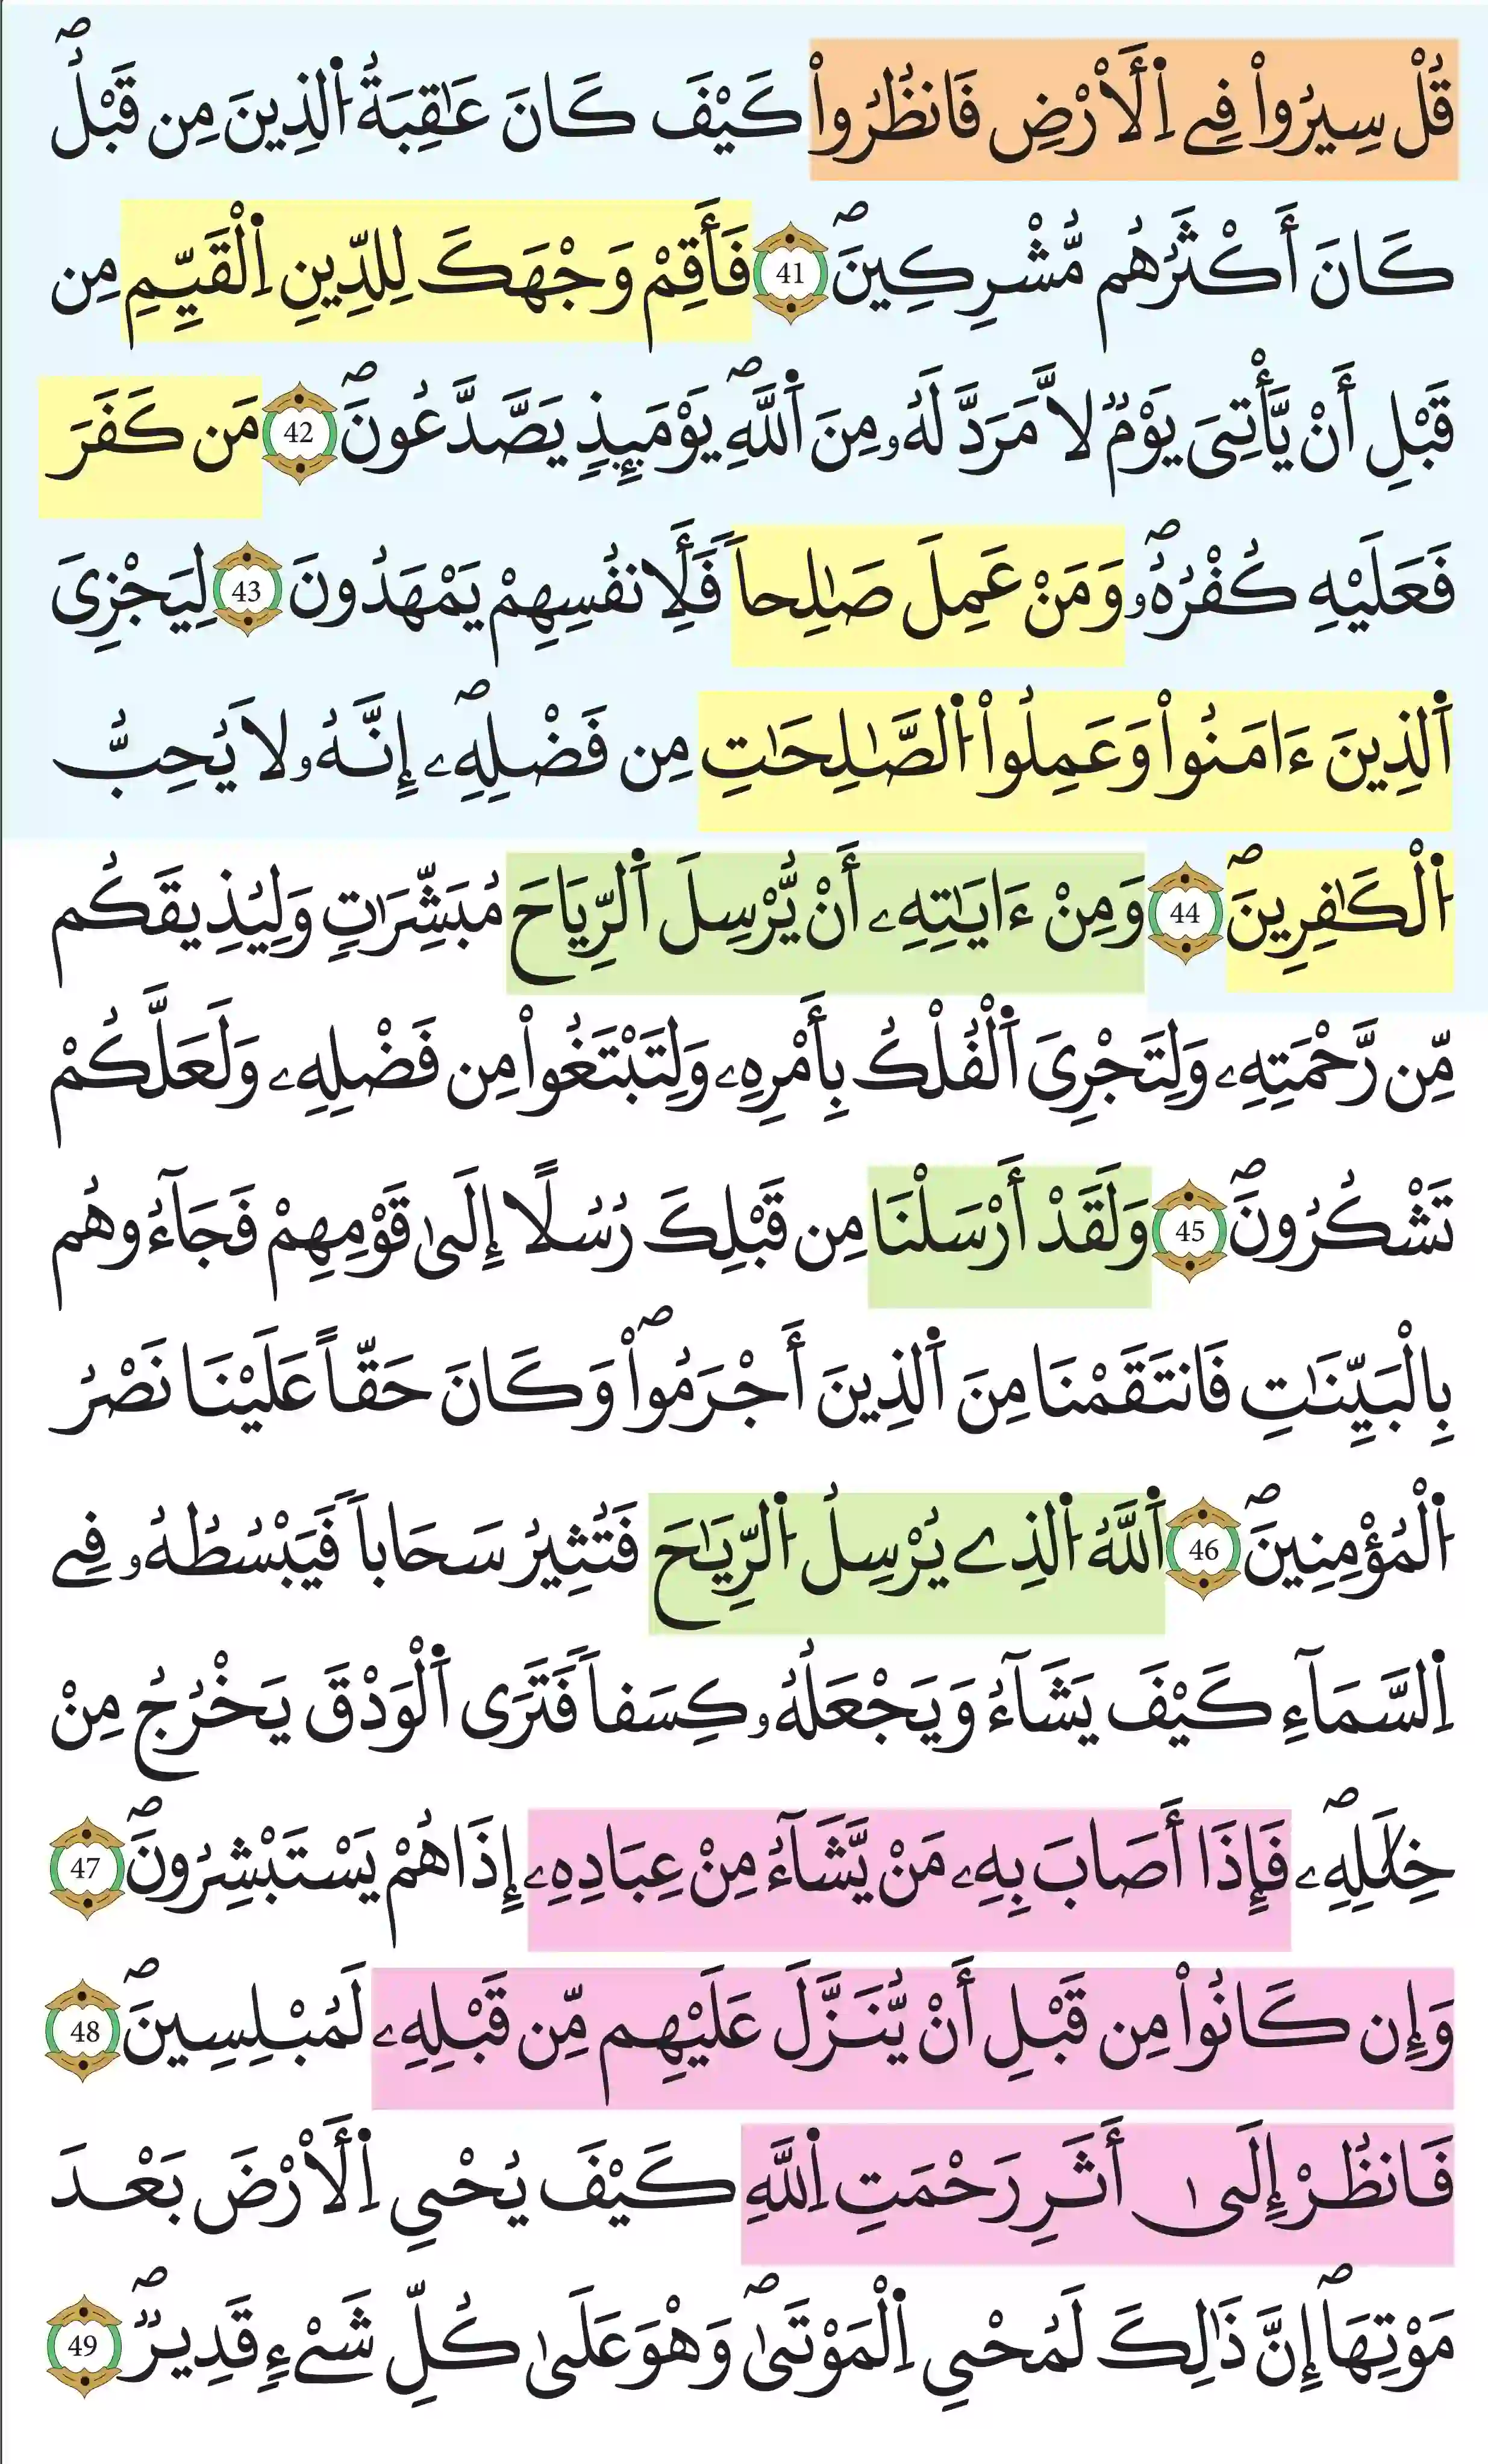 قُلْ سِيرُواْ فِے اِ۬لَارْضِ فَانظُرُواْ كَيْفَ كَانَ عَٰقِبَةُ اُ۬لذِينَ مِن قَبْلُۖ
كَانَ أَكْثَرُهُم مُّشْرِكِينَۖ 41 فَأَقِمْ وَجْهَكَ لِلدِّينِ اِ۬لْقَيِّمِ مِن
قَبْلِ أَنْ يَّأْتِىَ يَوْمٞ لَّا مَرَدَّ لَهُۥ مِنَ اَ۬للَّهِۖ يَوْمَئِذٖ يَصَّدَّعُونَۖ 42 مَن كَفَرَ
فَعَلَيْهِ كُفْرُهُۥۖ وَمَنْ عَمِلَ صَٰلِحاٗ فَلِأَنفُسِهِمْ يَمْهَدُونَ 43 لِيَجْزِىَ
اَ۬لذِينَ ءَامَنُواْ وَعَمِلُواْ اُ۬لصَّٰلِحَٰتِ مِن فَضْلِهِۦۖ إِنَّهُۥ لَا يُحِبُّ
اُ۬لْكَٰفِرِينَۖ 44 وَمِنْ ءَايَٰتِهِۦ أَنْ يُّرْسِلَ اَ۬لرِّيَاحَ مُبَشِّرَٰتٖ وَلِيُذِيقَكُم
مِّن رَّحْمَتِهِۦ وَلِتَجْرِىَ اَ۬لْفُلْكُ بِأَمْرِهِۦ وَلِتَبْتَغُواْ مِن فَضْلِهِۦ وَلَعَلَّكُمْ
تَشْكُرُونَۖ 45 وَلَقَدْ أَرْسَلْنَا مِن قَبْلِكَ رُسُلًا إِلَىٰ قَوْمِهِمْ فَجَآءُوهُم
بِالْبَيِّنَٰتِ فَانتَقَمْنَا مِنَ اَ۬لذِينَ أَجْرَمُواْۖ وَكَانَ حَقّاً عَلَيْنَا نَصْرُ
اُ۬لْمُؤْمِنِينَۖ 46 اَ۬للَّهُ اُ۬لذِے يُرْسِلُ اُ۬لرِّيَٰحَ فَتُثِيرُ سَحَاباٗ فَيَبْسُطُهُۥ فِے
اِ۬لسَّمَآءِ كَيْفَ يَشَآءُ وَيَجْعَلُهُۥ كِسَفاٗ فَتَرَى اَ۬لْوَدْقَ يَخْرُجُ مِنْ
خِلَٰلِهِۦۖ فَإِذَا أَصَابَ بِهِۦ مَنْ يَّشَآءُ مِنْ عِبَادِهِۦ إِذَا هُمْ يَسْتَبْشِرُونَۖ 47
وَإِن كَانُواْ مِن قَبْلِ أَنْ يُّنَزَّلَ عَلَيْهِم مِّن قَبْلِهِۦ لَمُبْلِسِينَۖ 48
فَانظُرْ إِلَىٰ أَثَرِ رَحْمَتِ اِ۬للَّهِ كَيْفَ يُحْىِ اِ۬لَارْضَ بَعْدَ
مَوْتِهَاۖ إِنَّ ذَٰلِكَ لَمُحْىِ اِ۬لْمَوْتَىٰۖ وَهْوَ عَلَىٰ كُلِّ شَےْءٖ قَدِيرٞۖ 49